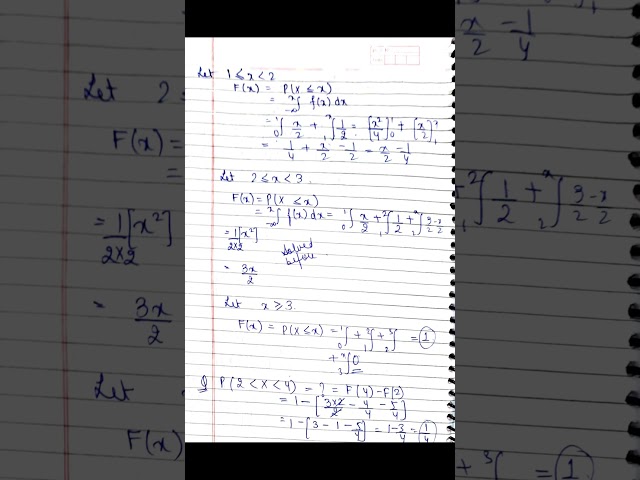 Let 1 ≤ x < 2
F(x) = P(X ≤ x)
= ∫_{-∞}^{x} f(x) dx
= ∫_0^1 x/2 + ∫_1^x 1/2 = [x²/4]_0^1 + [x/2]_1^x
= 1/4 + x/2 - 1/2 = x/2 - 1/4
Let 2 ≤ x < 3.
F(x) = P(X ≤ x)
= ∫_{-∞}^{x} f(x) dx = ∫_0^1 x/2 + ∫_1^2 1/2 + ∫_2^x 3/2 - x/2
= 1/(2×2) [x²]
solved before
= 3x/2
Let x ≥ 3.
F(x) = P(X ≤ x) = ∫_0^1 + ∫_1^2 + ∫_2^3 = 1
+ ∫_3^x 0
Q P(2 < X < 4) = ? = F(4) - F(2)
= 1 - [3×2/2 - 4/4 - 5/4]
= 1 - [3 - 1 - 5/4] = 1 - 3/4 = 1/4
x/2 - 1/4
Let 2
F(x) =
=
= 1/(2×2) [x²]
∫^2 1/2 + ∫_2^x 3/2 - x/2
= 3x/2
Let
F(x)
+ ∫^3 = 1